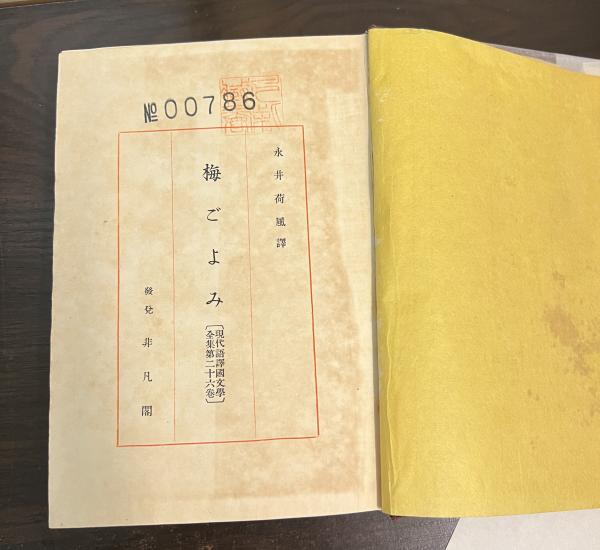 №00786
永井荷風譯
梅ごよみ
〔現代語譯國文學
全集第二十六卷〕
發兌 非凡閣